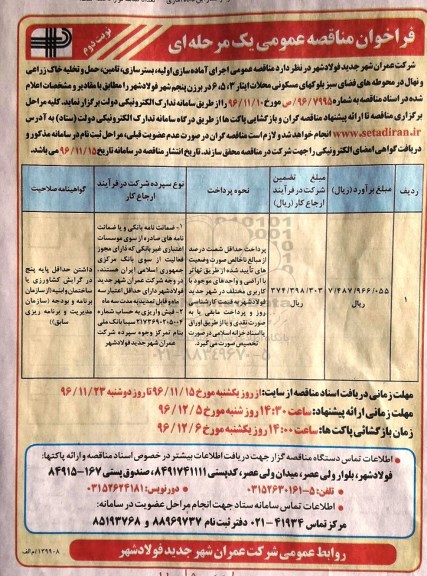 نوبت دوم
فراخوان مناقصه عمومی یک مرحله ای
شرکت عمران شهر جدید فولادشهر در نظر دارد مناقصه عمومی اجرای آماده سازی اولیه، بسترسازی، تامین، حمل و تخلیه خاک زراعی
و نهال در محوطه های فضای سبز بلوکهای مسکونی محلات ایثار ۳، ۵، ۶ در برزن پنجم شهر فولادشهر را مطابق با مقادیر و مشخصات اعلام
شده در اسناد مناقصه به شماره ۹۶/۷۹۹۵/ص مورخ ۹۶/۱۱/۱۰ را از طریق سامانه تدارک الکترونیکی دولت برگزار نماید. کلیه مراحل
برگزاری مناقصه از ارائه پیشنهاد مناقصه گران و بازگشایی پاکت ها از طریق درگاه سامانه تدارک الکترونیکی دولت (ستاد) به آدرس
www.setadiran.ir انجام خواهد شد و لازم است مناقصه گران در صورت عدم عضویت قبلی، مراحل ثبت نام در سامانه مذکور و
دریافت گواهی امضای الکترونیکی را جهت شرکت در مناقصه محقق سازند. تاریخ انتشار مناقصه در سامانه تاریخ ۹۶/۱۱/۱۵ می باشد.
ردیف
مبلغ برآورد (ریال)
مبلغ تضمین شرکت در فرآیند ارجاع کار (ریال)
نحوه پرداخت
نوع سپرده شرکت در فرآیند ارجاع کار
گواهینامه صلاحیت
۷/۴۸۷/۹۶۶/۰۵۵
ریال
۳۷۴/۳۹۸/۳۰۳
ریال
پرداخت حداقل شصت درصد
از مبالغ ناخالص صورت وضعیت
های تأیید شده از طریق تهاتر
با اراضی و واحدهای موجود با
کاربری مختلف در شهر جدید
فولادشهر به قیمت کارشناسی
روز و پرداخت مابقی یا به
صورت نقدی و یا از طریق اوراق
یا اسناد خزانه اسلامی در صورت
تخصیص صورت می گیرد.
۱- ضمانت نامه بانکی و یا ضمانت
نامه های صادره از سوی موسسات
اعتباری غیر بانکی که دارای مجوز
فعالیت از سوی بانک مرکزی
جمهوری اسلامی ایران هستند،
در وجه شرکت عمران شهر جدید
فولادشهر دارای حداقل اعتبار سه
ماه و قابل تمدید به مدت سه ماه
۲- فیش واریزی به حساب شماره
۲۱۷۳۶۹۰۲۰۵۰۰۴ سیبا بانک ملی
بنام تمرکز وجوه سپرده شرکت
عمران شهر جدید فولادشهر
داشتن حداقل پایه پنج
در گرایش کشاورزی یا
ساختمان و ابنیه از سازمان
برنامه و بودجه (سازمان
مدیریت و برنامه ریزی
سابق)
مهلت زمانی دریافت اسناد مناقصه از سایت: از روز یکشنبه مورخ ۹۶/۱۱/۱۵ تا روز دوشنبه ۹۶/۱۱/۲۳
مهلت زمانی ارائه پیشنهاد: ساعت ۱۴:۳۰ روز شنبه مورخ ۹۶/۱۲/۵
زمان بازگشائی پاکت ها: ساعت ۱۴:۰۰ روز یکشنبه مورخ ۹۶/۱۲/۶
• اطلاعات تماس دستگاه مناقصه گزار جهت دریافت اطلاعات بیشتر در خصوص اسناد مناقصه و ارائه پاکتها:
فولادشهر، بلوار ولی عصر، میدان ولی عصر، کدپستی ۸۴۹۱۷۴۱۱۱۱، صندوق پستی ۱۶۷-۸۴۹۱۵
• تلفن: ۵-۰۳۱۵۲۶۳۰۱۶۱ • دورنویس: ۰۳۱۵۲۶۲۴۱۸۱
• اطلاعات تماس سامانه ستاد جهت انجام مراحل عضویت در سامانه:
مرکز تماس ۴۱۹۳۴-۰۲۱ دفتر ثبت نام ۸۸۹۶۹۷۳۷ و ۸۵۱۹۳۷۶۸
روابط عمومی شرکت عمران شهر جدید فولادشهر
۱۳۹۹۰۸/م الف